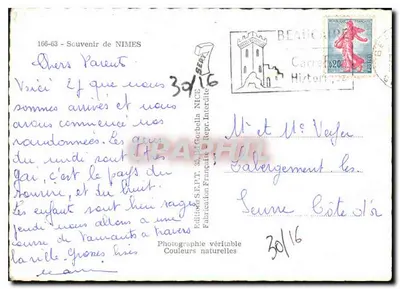 166-63 - Souvenir de NIMES
Chers Parents
Voici 2 j que nous
sommes arrivés et nous
avons commencé nos
randonnées. Les gens
du midi sont plus
gai, c'est le pays du
sourire, et du bruit.
Les enfants sont bien sages
jeudi nous allons a une
course de Taureaux a travers
la ville. Grosses bises
30/16
BEAUCAIRE
Mr et Me
Labergement les
Seurre Côte d'or
30/16
Editions S.E.P.T. Gorbella NICE
Fabrication Française - Repr. Interdite
Photographie véritable
Couleurs naturelles